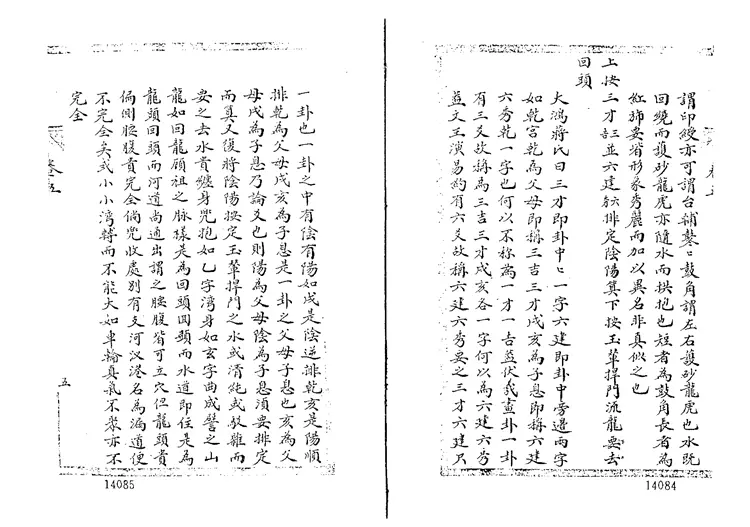 謂印綬亦可謂台輔鼕〻鼓角謂左右護砂龍虎也水既
回繞而護砂龍虎亦隨水而拱抱也短者為鼓角長者為
紅旆妾省形象秀麗而加以異名非真似之也
上按三才並六建排定陰陽算下按玉輦捍門流龍要去
回頭
大鴻蔣氏曰三才即卦中〻一字六建即卦中旁邊兩字
如乾宮乾為父母即稱三吉三才戌亥為子息即稱六建
六秀乾一字也何以不称為一才一吉益伏羲畫卦一卦
有三爻故稱為三吉三才戌亥各一字何以為六建六秀
益文王演易約有六爻故稱六建六秀要之三才六建只
一卦也一卦之中有陰有陽如戌是陰逆排乾亥是陽順
排乾為父母戌亥為子息是一卦之父母子息也亥為父
母戌為子息乃論爻也則陽為父母陰為子息須要排定
而算又復將陰陽按定玉輦捍門之水或清純或駁雜而
要之去水貴纏身兜抱如乙字灣身如玄字曲成譬之山
龍如回龍顧祖之脉樣是為回頭回頭而水道即住是為
龍頭回頭而河道尚通出謂之腰腹皆可立穴但龍頭貴
偏側腰腹貴完全倘兜收處別有支河汊港名為漏道便
不完全矣或小小灣轉而不能大如車輪真氣不聚亦不
完全
五
14085
14084